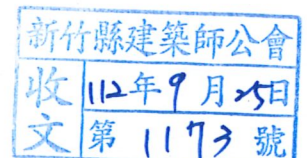 新竹縣建築師公會
收文
112年9月25日
第1173號